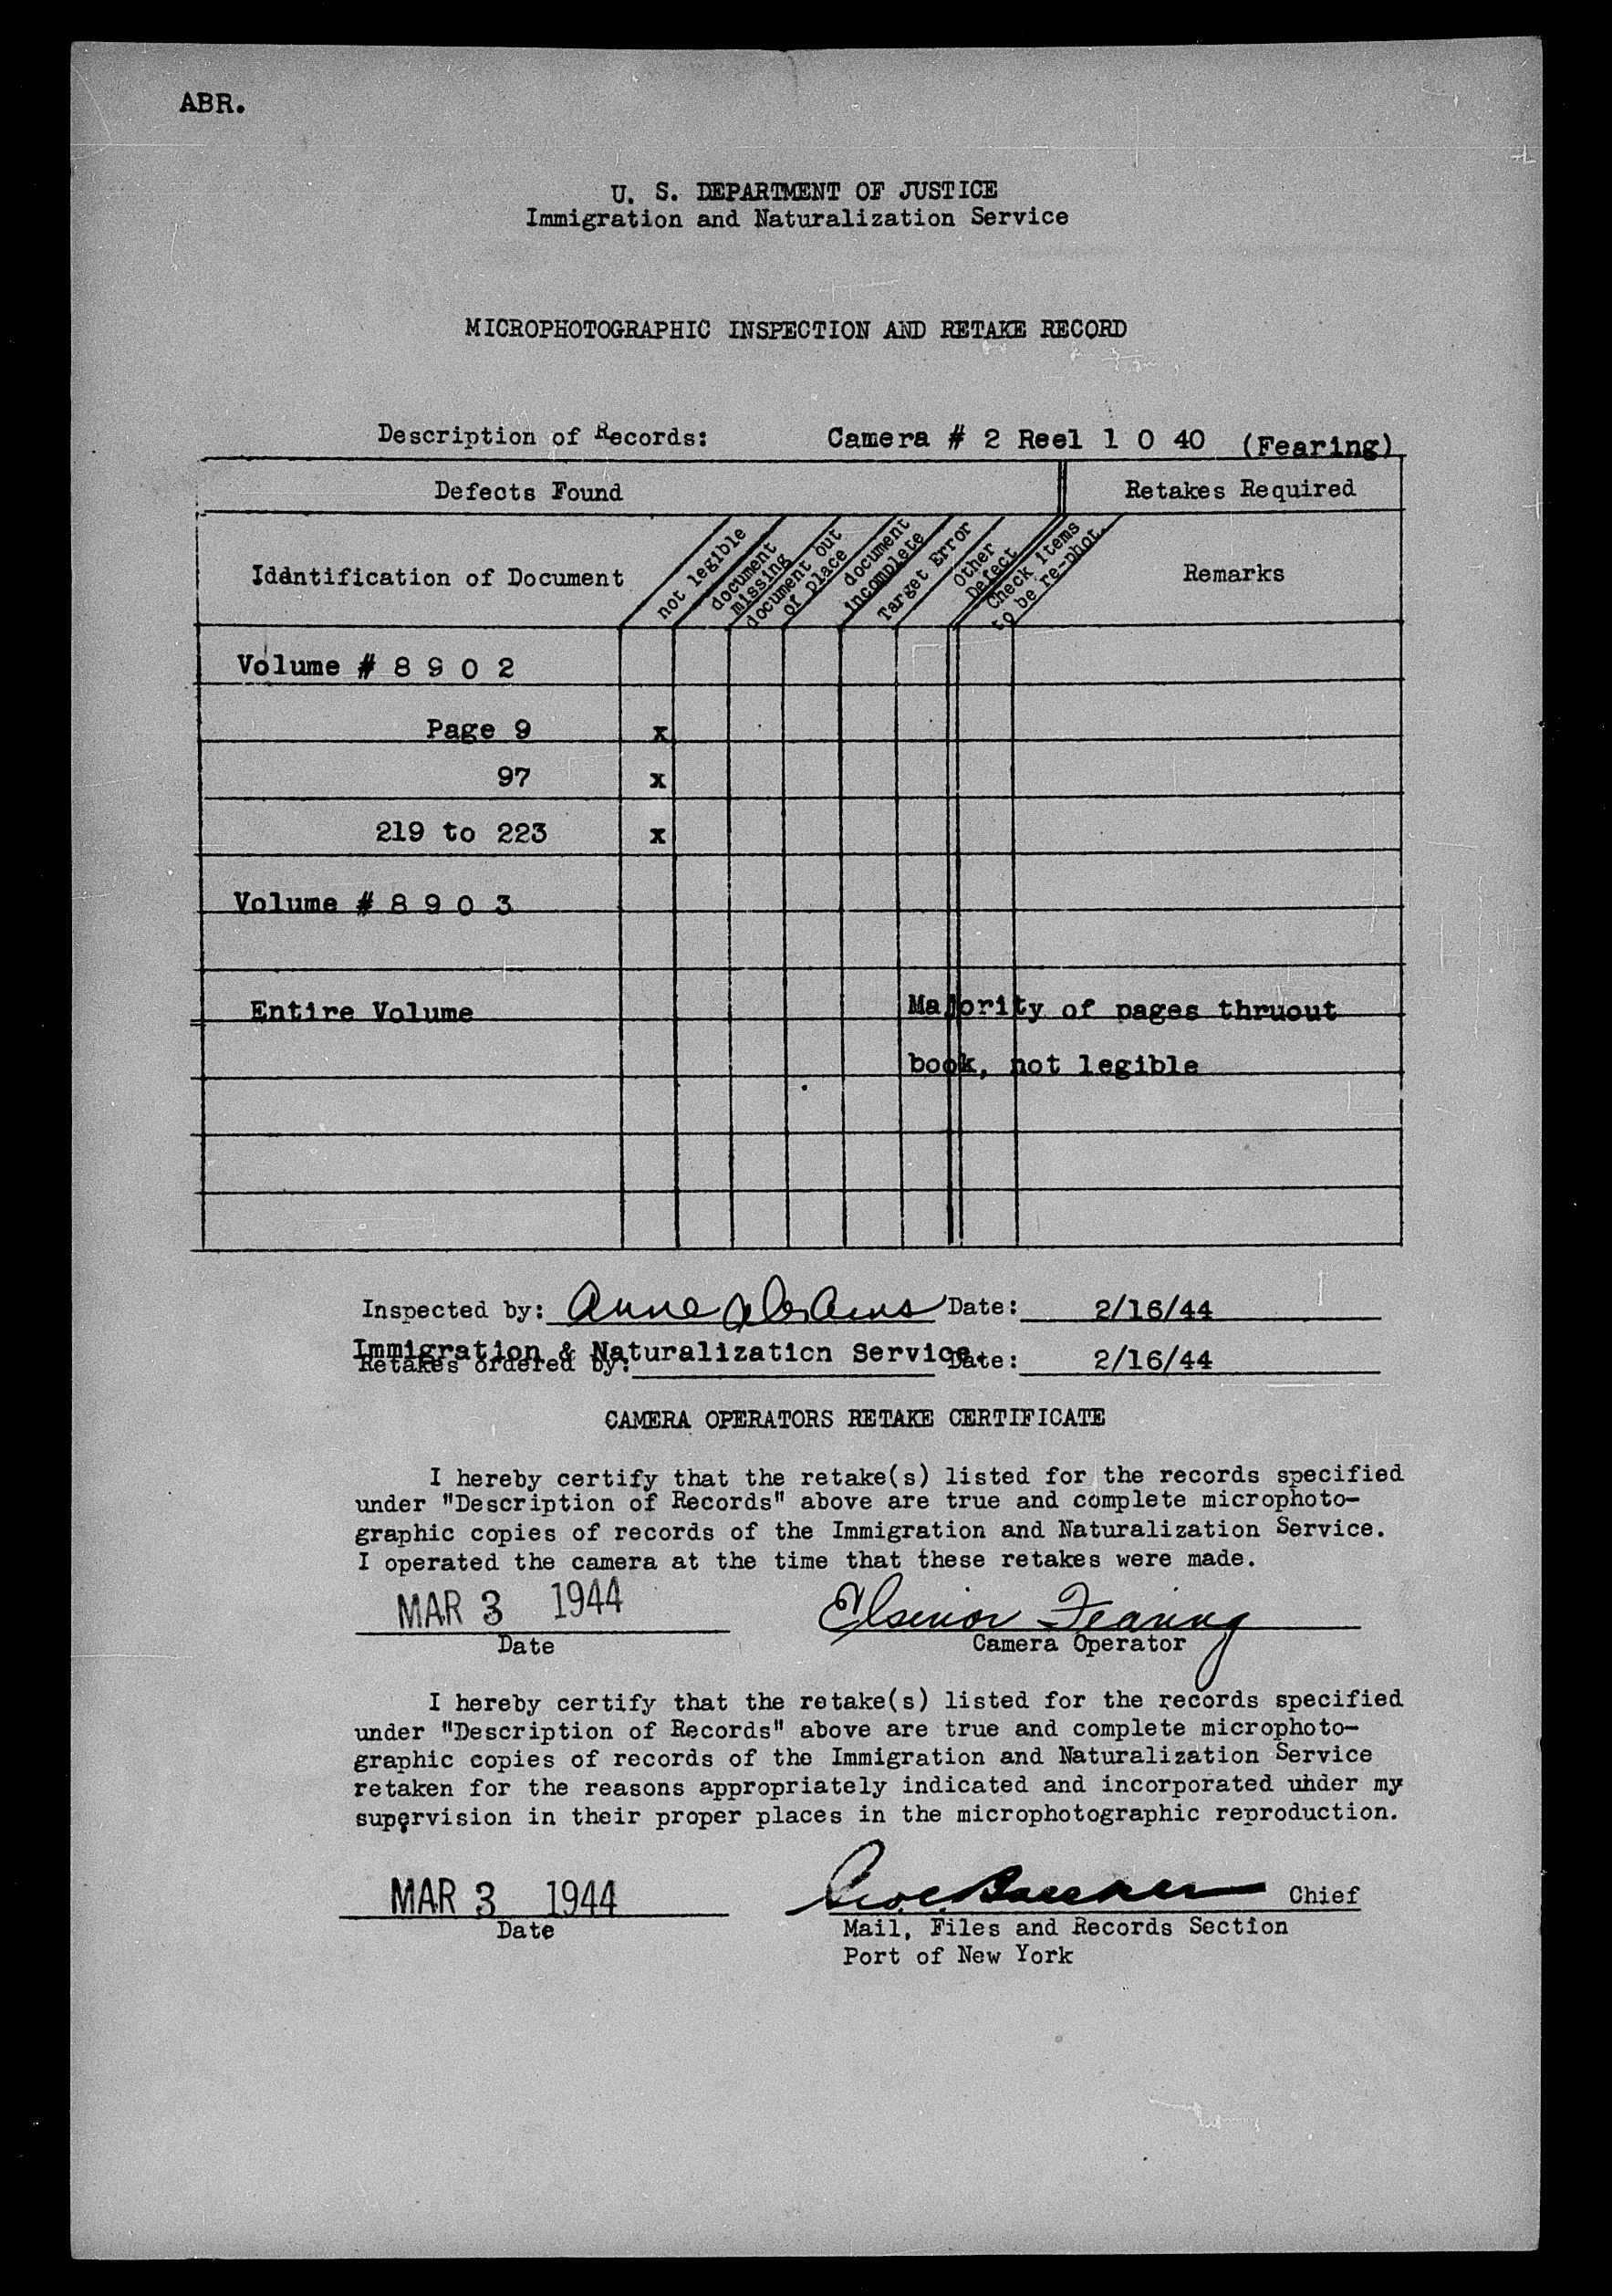 ABR.
U. S. DEPARTMENT OF JUSTICE
Immigration and Naturalization Service
MICROPHOTOGRAPHIC INSPECTION AND RETAKE RECORD
Description of Records: Camera # 2 Reel 1 0 40 (Fearing)
Defects Found Retakes Required
Idántification of Document
not legible
document
missing
document out
of place
document
incomplete
Target Error
Other
Defect
Check items
to be re-phot.
Remarks
Volume # 8 9 0 2
Page 9 x
97 x
219 to 223 x
Volume # 8 9 0 3
Entire Volume Majority of pages thruout
book, not legible
Inspected by: Anne Date: 2/16/44
Immigration & Naturalization Service
Retakes ordered by: Date: 2/16/44
CAMERA OPERATORS RETAKE CERTIFICATE
I hereby certify that the retake(s) listed for the records specified
under "Description of Records" above are true and complete microphoto-
graphic copies of records of the Immigration and Naturalization Service.
I operated the camera at the time that these retakes were made.
MAR 3 1944 Elsenior Fearing
Date Camera Operator
I hereby certify that the retake(s) listed for the records specified
under "Description of Records" above are true and complete microphoto-
graphic copies of records of the Immigration and Naturalization Service
retaken for the reasons appropriately indicated and incorporated under my
supervision in their proper places in the microphotographic reproduction.
MAR 3 1944 Chief
Date Mail, Files and Records Section
Port of New York